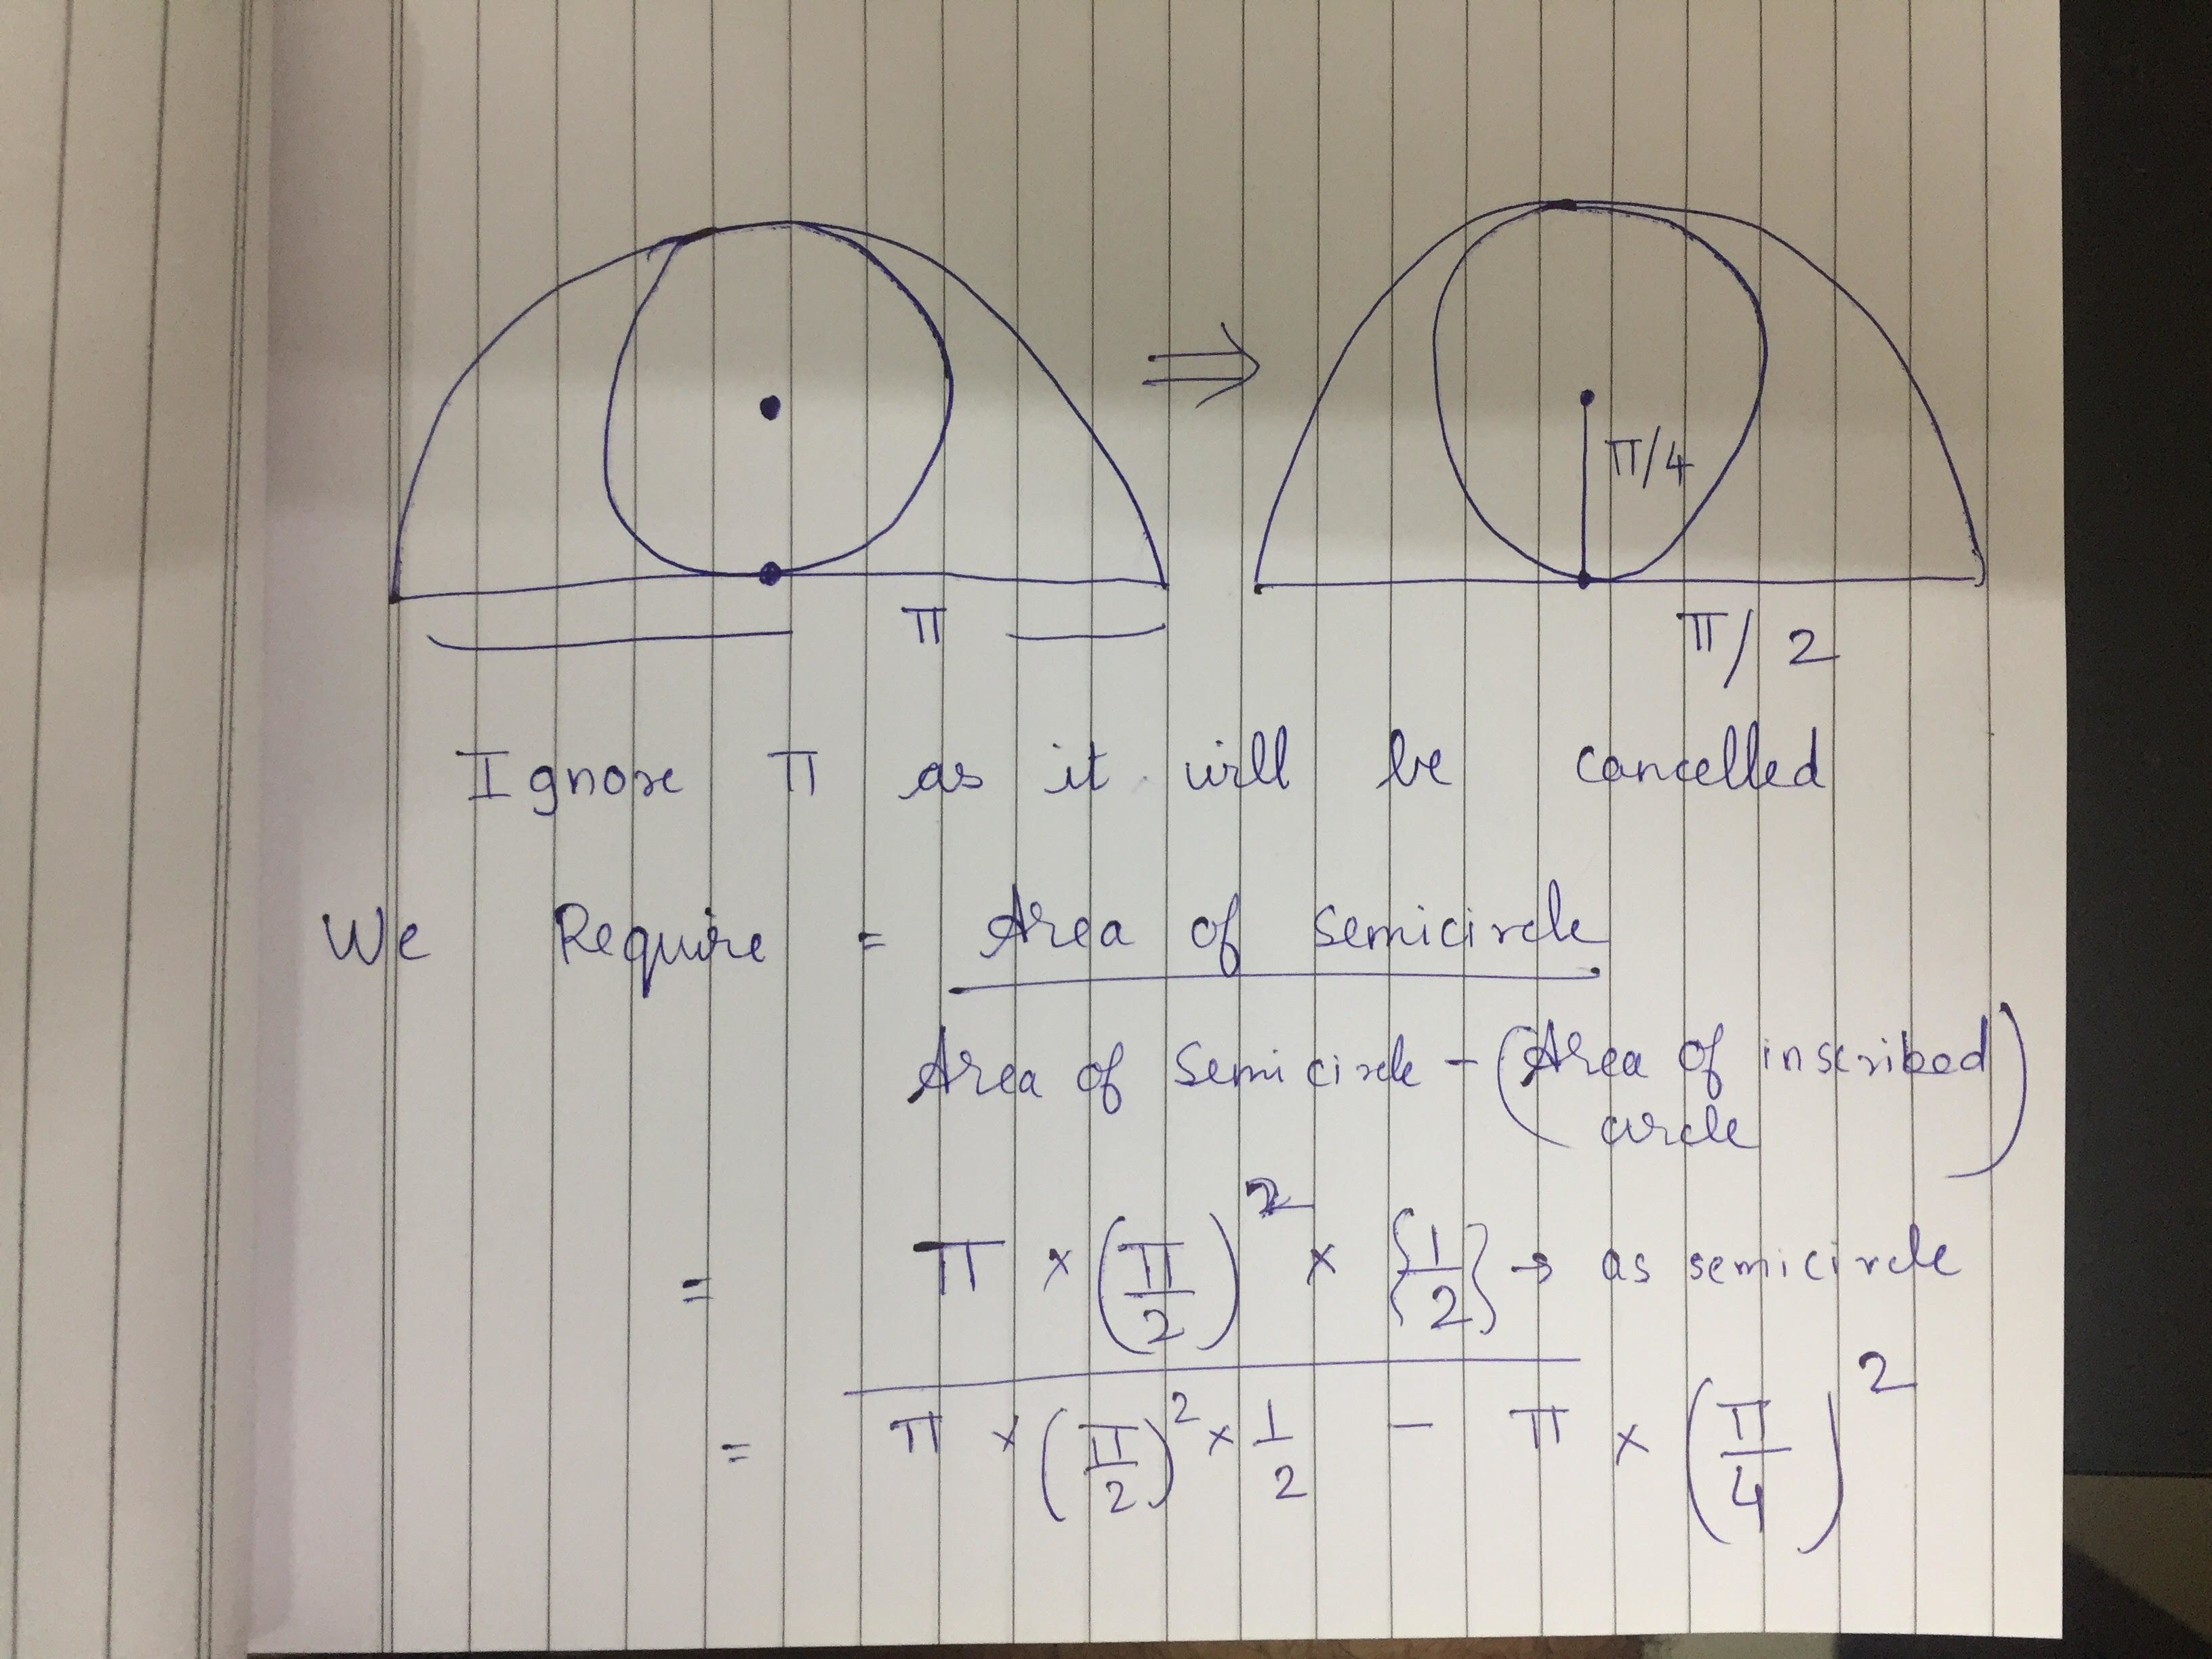 π/4
π
π/2
Ignore π as it will be cancelled
We Require = Area of Semicircle
Area of Semicircle - (Area of inscribed
circle)
= π × (π/2)² × {1/2} → as semicircle
= π × (π/2)² × 1/2 - π × (π/4)²